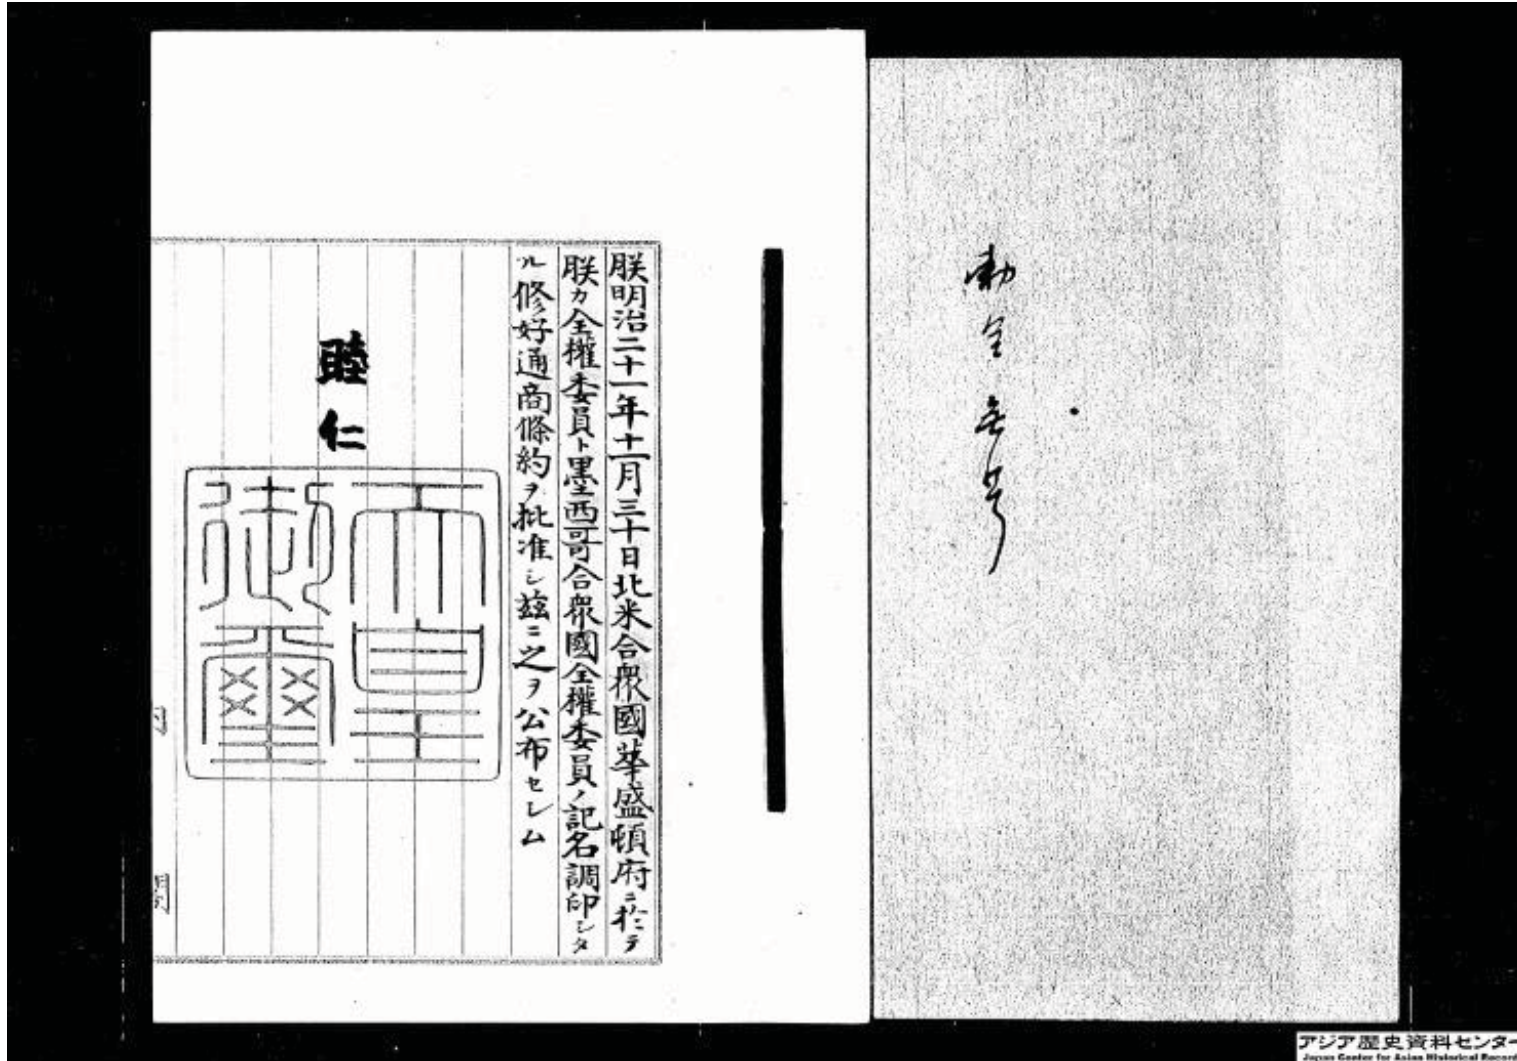 勅令無号
朕明治二十一年十一月三十日北米合衆國華盛頓府ニ於テ
朕カ全權委員ト墨西哥合衆國全權委員ノ記名調印シタ
ル修好通商條約ヲ批准シ茲ニ之ヲ公布セシム
睦仁
天皇
御璽
アジア歴史資料センター
Japan Center for Asian Historical Record